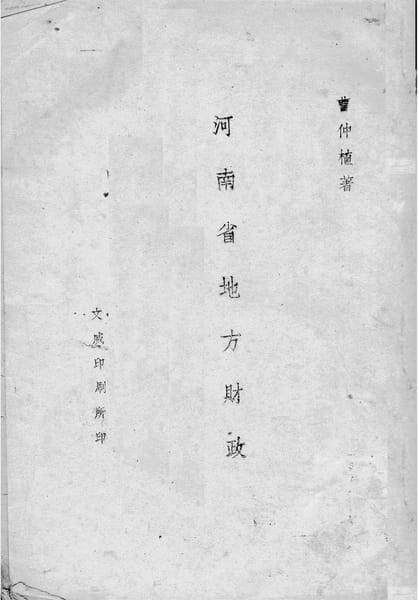 曹仲植著
河南省地方財政
文威印刷所印